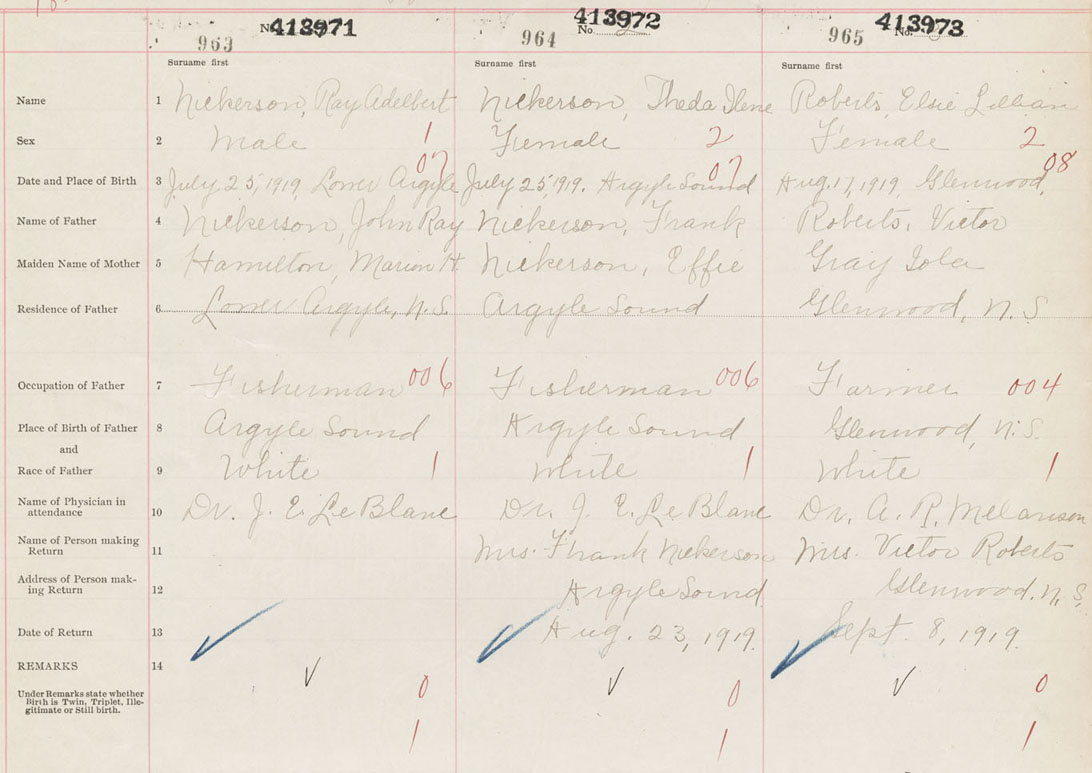 963 No. 413971 964 No. 413972 965 No. 413973
Surname first Surname first Surname first
Name 1 Nickerson, Ray Adelbert Nickerson, Theda Ilene Roberts, Elsie Lillian
Sex 2 Male 1 Female 2 Female 2
07 07 08
Date and Place of Birth 3 July 25, 1919, Lower Argyle July 25, 1919. Argyle Sound Aug. 17, 1919 Glenwood,
Name of Father 4 Nickerson, John Ray Nickerson, Frank Roberts, Victor
Maiden Name of Mother 5 Hamilton, Marion H Nickerson, Effie Gray Iola
Residence of Father 6 Lower Argyle, N.S. Argyle Sound Glenwood, N.S
Occupation of Father 7 Fisherman 006 Fisherman 006 Farmer 004
Place of Birth of Father 8 Argyle Sound Argyle Sound Glenwood, N.S.
and
Race of Father 9 White 1 White 1 White 1
Name of Physician in
attendance 10 Dr. J. E. LeBlanc Dr. J. E. LeBlanc Dr. A. R. Melanson
Name of Person making
Return 11 Mrs. Frank Nickerson Mrs. Victor Roberts
Address of Person mak-
ing Return 12 Argyle Sound Glenwood, N.S.
Date of Return 13 Aug. 23, 1919. Sept 8, 1919.
REMARKS 14
0 0 0
Under Remarks state whether
Birth is Twin, Triplet, Ille-
gitimate or Still birth.
1 1 1